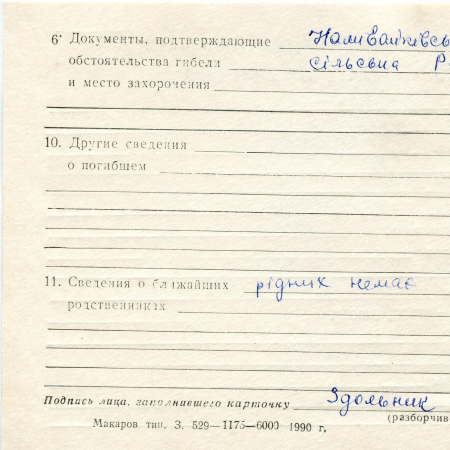 9. Документы, подтверждающие Наливайківсь
обстоятельства гибели сільсьвиа Р
и место захоронения
10. Другие сведения
о погибшем
11. Сведения о ближайших рідних немає
родственниках
Подпись лица, заполнившего карточку Здольник
(разборчив
Макаров тип. З. 529—1175—6000 1990 г.